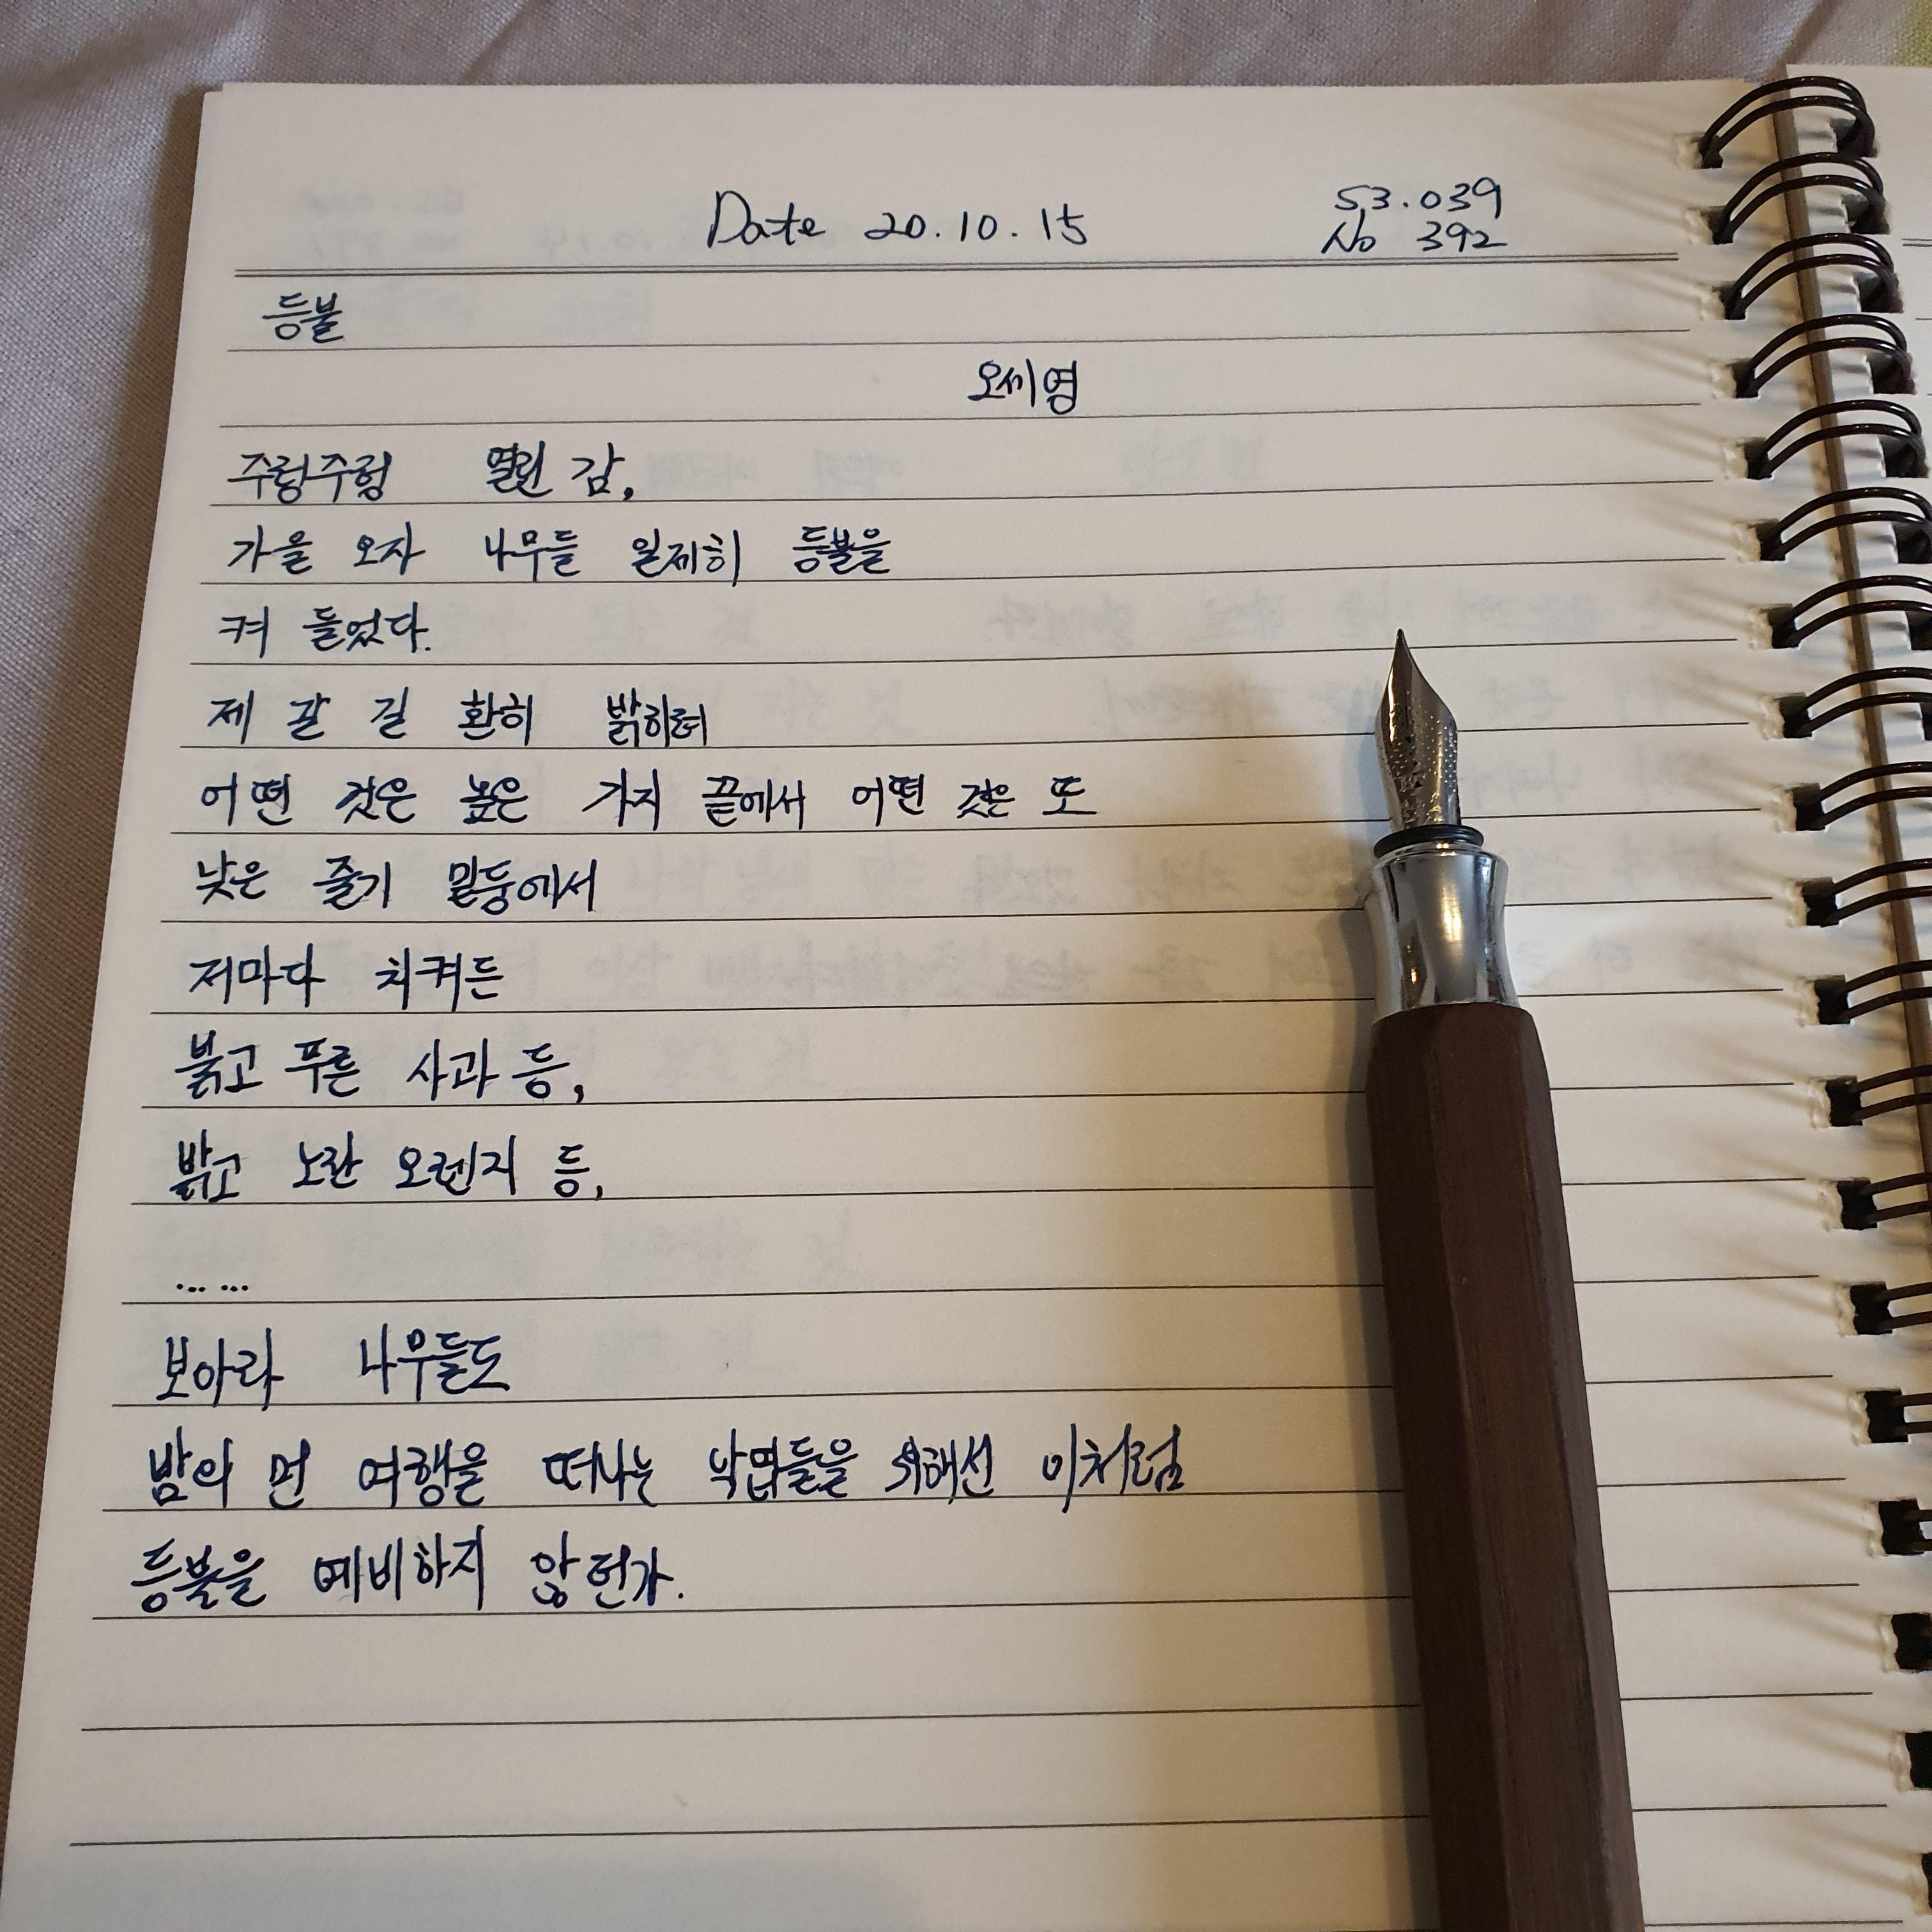 Date 20.10.15
S3.039
No 392
등불
오세영
주렁주렁 열린 감,
가을 오자 나무들 일제히 등불을
켜 들었다.
제 갈 길 환히 밝히려
어떤 것은 높은 가지 끝에서 어떤 것은 또
낮은 줄기 밑둥에서
저마다 치켜든
붉고 푸른 사과 등,
밝고 노란 오렌지 등,
... ...
보아라 나무들도
밤의 먼 여행을 떠나는 낙엽들을 위해선 이처럼
등불을 예비하지 않던가.